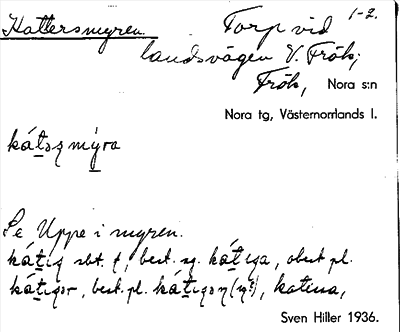 Kattersmyren. Torp vid 1-2.
landsvägen V. Frök;
Frök, Nora s:n
Nora tg, Västernorrlands l.
kátsz mýra
Se Uppe i myren.
kátig sbt. f, best. sg. kátiga, obest. pl.
kátigor, best. pl. kátigoṇ katina,
Sven Hiller 1936.